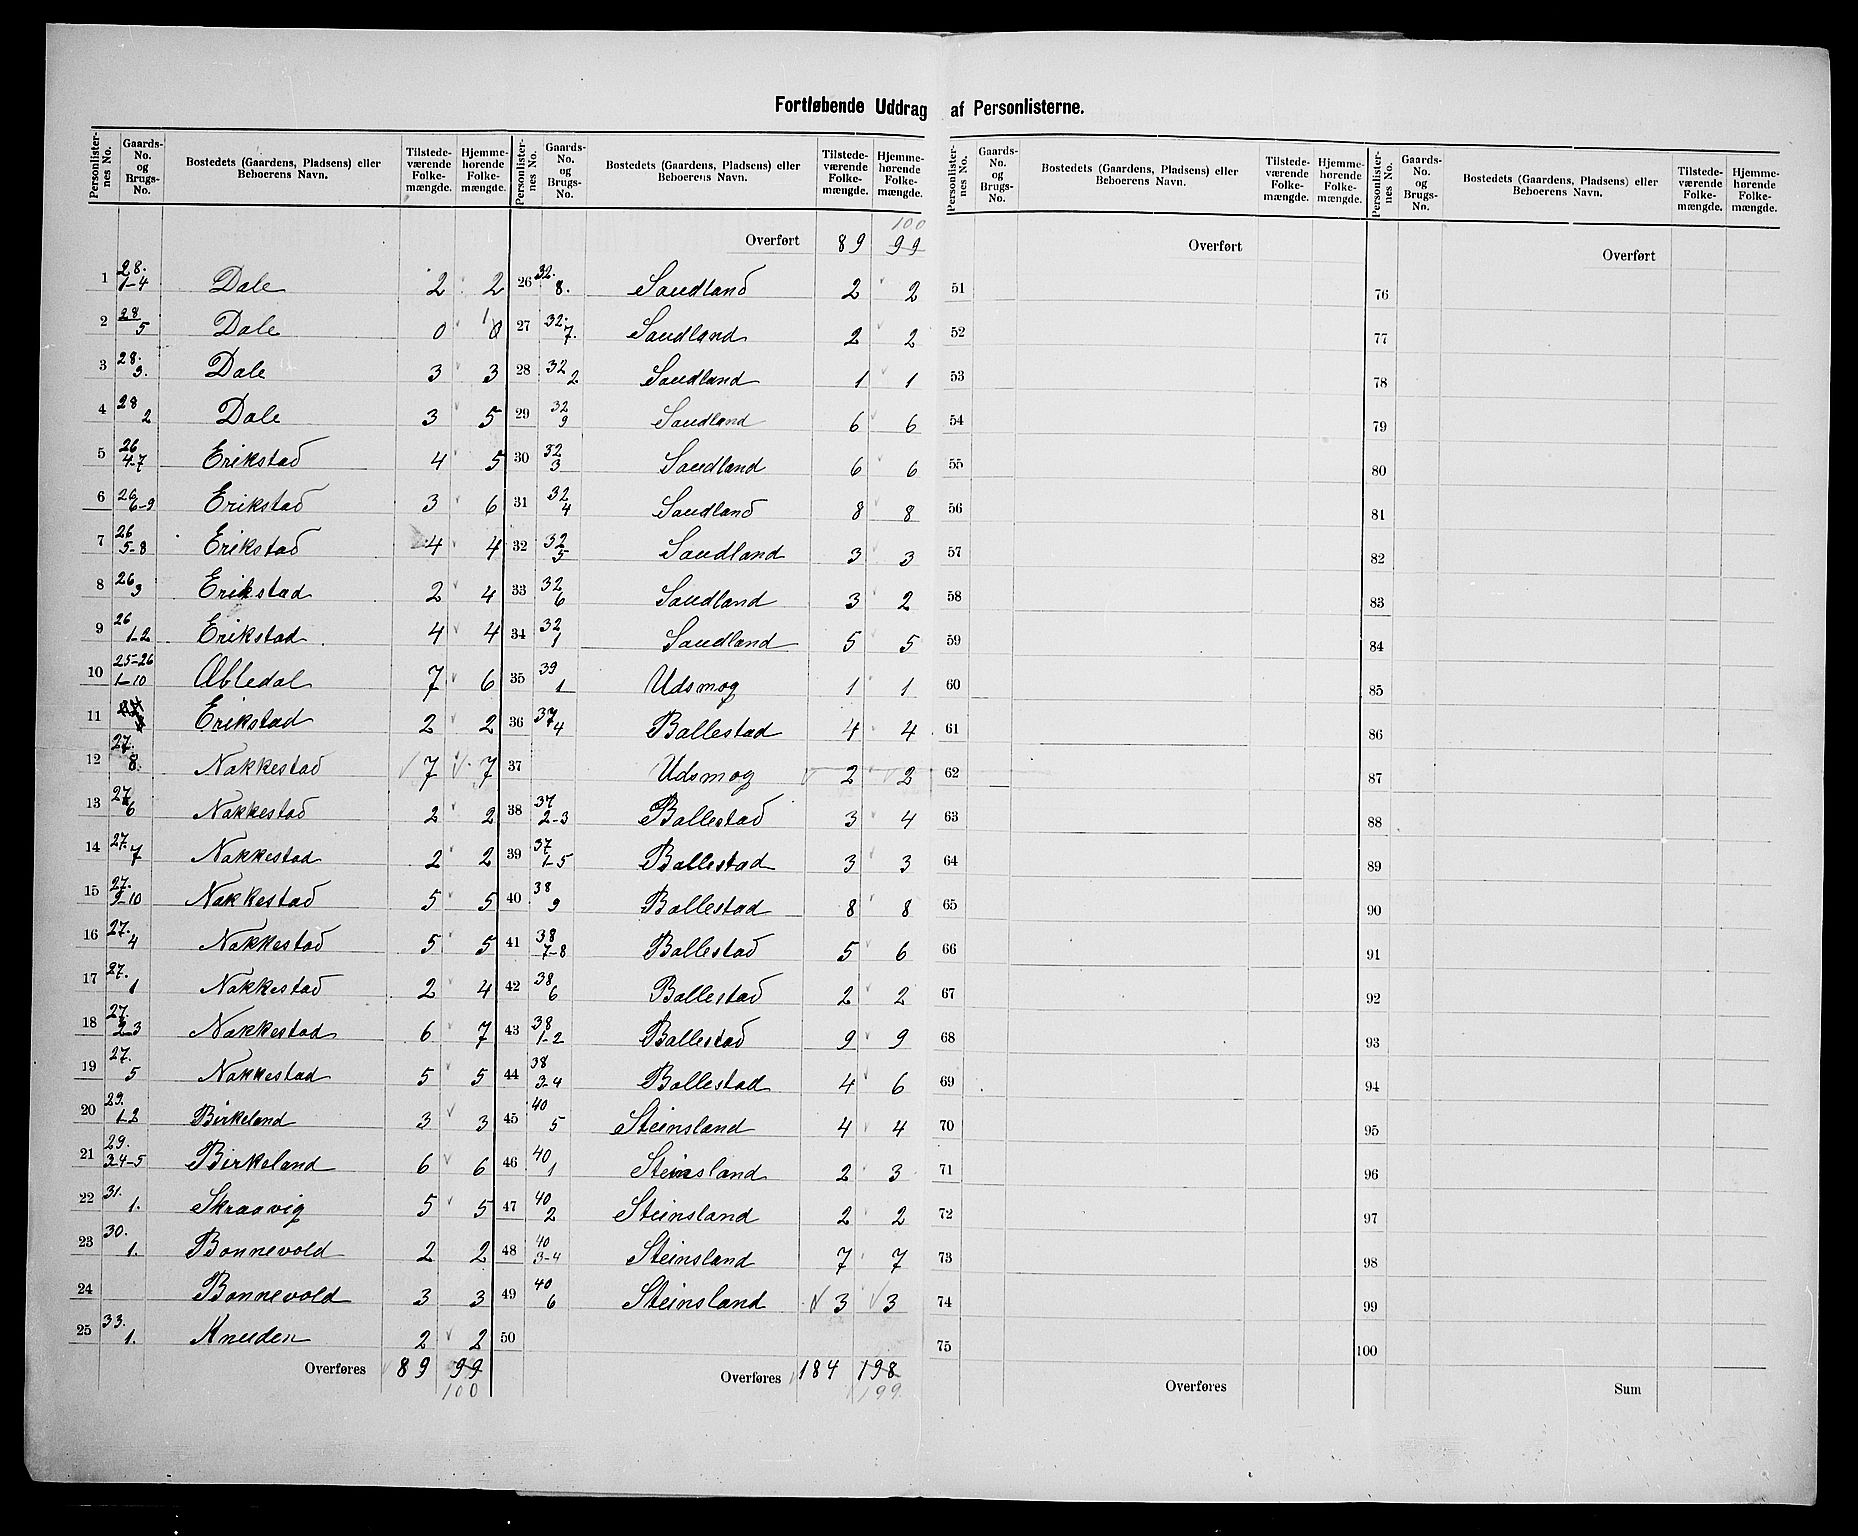 Fortløbende Uddrag af Personlisterne.
Personlister-nes No. Gaards-No. og Brugs-No. Bostedets (Gaardens, Pladsens) eller Beboerens Navn. Tilstede-værende Folke-mængde. Hjemme-hørende Folke-mængde.
1 28. 1-4 Dale 2 2
2 28 5 Dale 0 1 0
3 28. 3. Dale 3 3
4 28 2 Dale 3 5
5 26 4-7 Erikstad 4 5
6 26 6-9 Erikstad 3 6
7 26 5-8 Erikstad 4 4
8 26 3 Erikstad 2 4
9 26 1-2 Erikstad 4 4
10 25-26 1-10 Abledal 7 6
11 Erikstad 2 2
12 27. 8. Nakkestad 7 7
13 27 6 Nakkestad 2 2
14 27. 7 Nakkestad 2 2
15 27. 9-10 Nakkestad 5 5
16 27. 4 Nakkestad 5 5
17 27. 1 Nakkestad 2 4
18 27. 2-3 Nakkestad 6 7
19 27. 5 Nakkestad 5 5
20 29. 1-2 Birkeland 3 3
21 29. 3-4-5 Birkeland 6 6
22 31. 1. Skraavig 5 5
23 30. 1. Bonnevold 2 2
24 Bonnevold 3 3
25 33. 1. Knuden 2 2
Overføres 89 99
100
Personlister-nes No. Gaards-No. og Brugs-No. Bostedets (Gaardens, Pladsens) eller Beboerens Navn. Tilstede-værende Folke-mængde. Hjemme-hørende Folke-mængde.
100
Overført 89 99
26 32. 8. Saudland 2 2
27 32. 7. Saudland 2 2
28 32 2 Saudland 1 1
29 32 9 Saudland 6 6
30 32 3 Saudland 6 6
31 32 4 Saudland 8 8
32 32 5 Saudland 3 3
33 32 6 Saudland 3 2
34 32 1 Saudland 5 5
35 39 1 Udsmog 1 1
36 37 4 Ballestad 4 4
37 Udsmog 2 2
38 37 2-3 Ballestad 3 4
39 37 1-5 Ballestad 3 3
40 38 9 Ballestad 8 8
41 38 7-8 Ballestad 5 6
42 38 6 Ballestad 2 2
43 38 1-2 Ballestad 9 9
44 38 3-4 Ballestad 4 6
45 40 5 Steinsland 4 4
46 40 1 Steinsland 2 3
47 40 2 Steinsland 2 2
48 40 3-4 Steinsland 7 7
49 40 6 Steinsland 3 3
50
Overføres 184 198
199.
Personlister-nes No. Gaards-No. og Brugs-No. Bostedets (Gaardens, Pladsens) eller Beboerens Navn. Tilstede-værende Folke-mængde. Hjemme-hørende Folke-mængde.
Overført
51
52
53
54
55
56
57
58
59
60
61
62
63
64
65
66
67
68
69
70
71
72
73
74
75
Overføres
Personlister-nes No. Gaards-No. og Brugs-No. Bostedets (Gaardens, Pladsens) eller Beboerens Navn. Tilstede-værende Folke-mængde. Hjemme-hørende Folke-mængde.
Overført
76
77
78
79
80
81
82
83
84
85
86
87
88
89
90
91
92
93
94
95
96
97
98
99
100
Sum